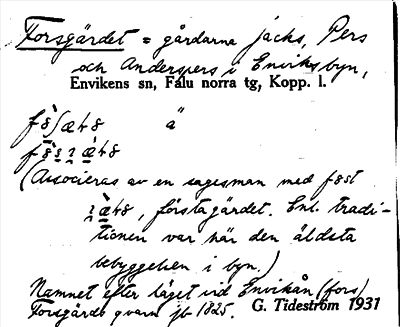 Forsgärdet = gårdarna jacks, Pers
och Anderspers i Enviks byn,
Envikens sn, Falu norra tg, Kopp. l.
ä
(Associeras av en sagesman med
, förstagärdet. Enl. tradi-
tionen var här den äldsta
bebyggelsen i byn.)
Namnet efter läget vid Envikån (fors)
Forsgärds qvarn jb 1825.
G. Tideström 1931